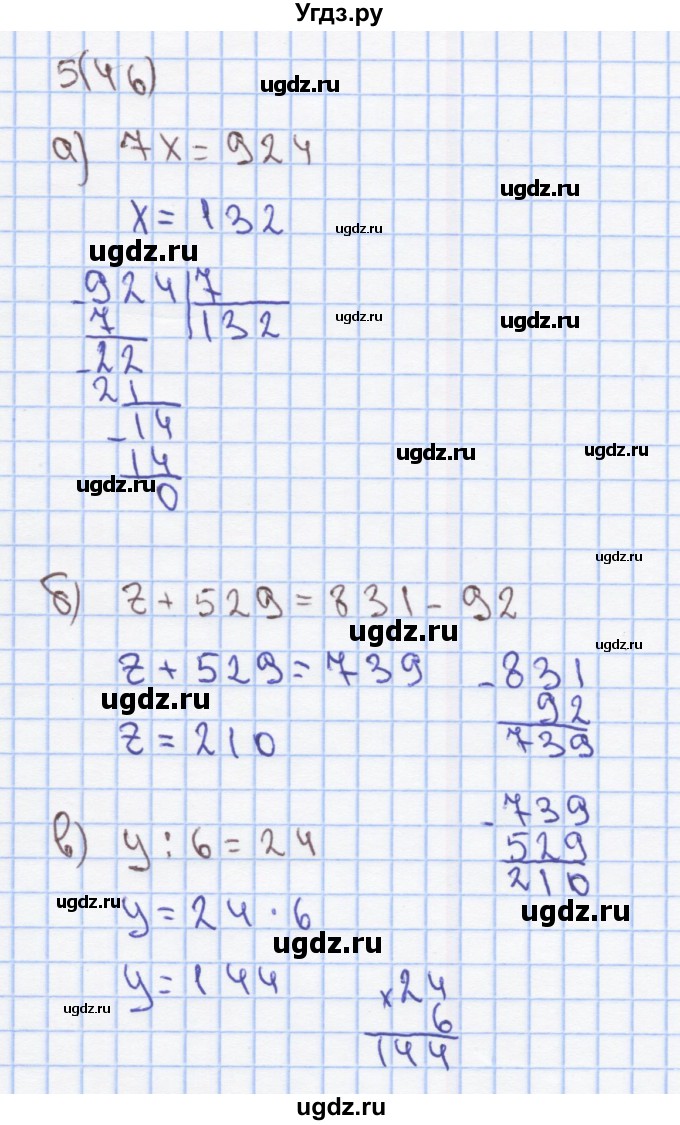 Угдз.ру
5(46)
ugdz.ru
а) 7x = 924
ugdz.ru
x = 132
ugdz.ru
ugdz.ru
- 924 | 7
7 | 132
ugdz.ru
ugdz.ru
- 22
21
- 14
ugdz.ru
ugdz.ru
14
ugdz.ru
0
ugdz.ru
б) z + 529 = 831 - 92
ugdz.ru
ugdz.ru
z + 529 = 739
- 831
ugdz.ru
92
z = 210
739
- 739
в) y : 6 = 24
529
210
ugdz.ru
y = 24 · 6
ugdz.ru
ugdz.ru
y = 144
x 24
ugdz.ru
6
144
ugdz.ru